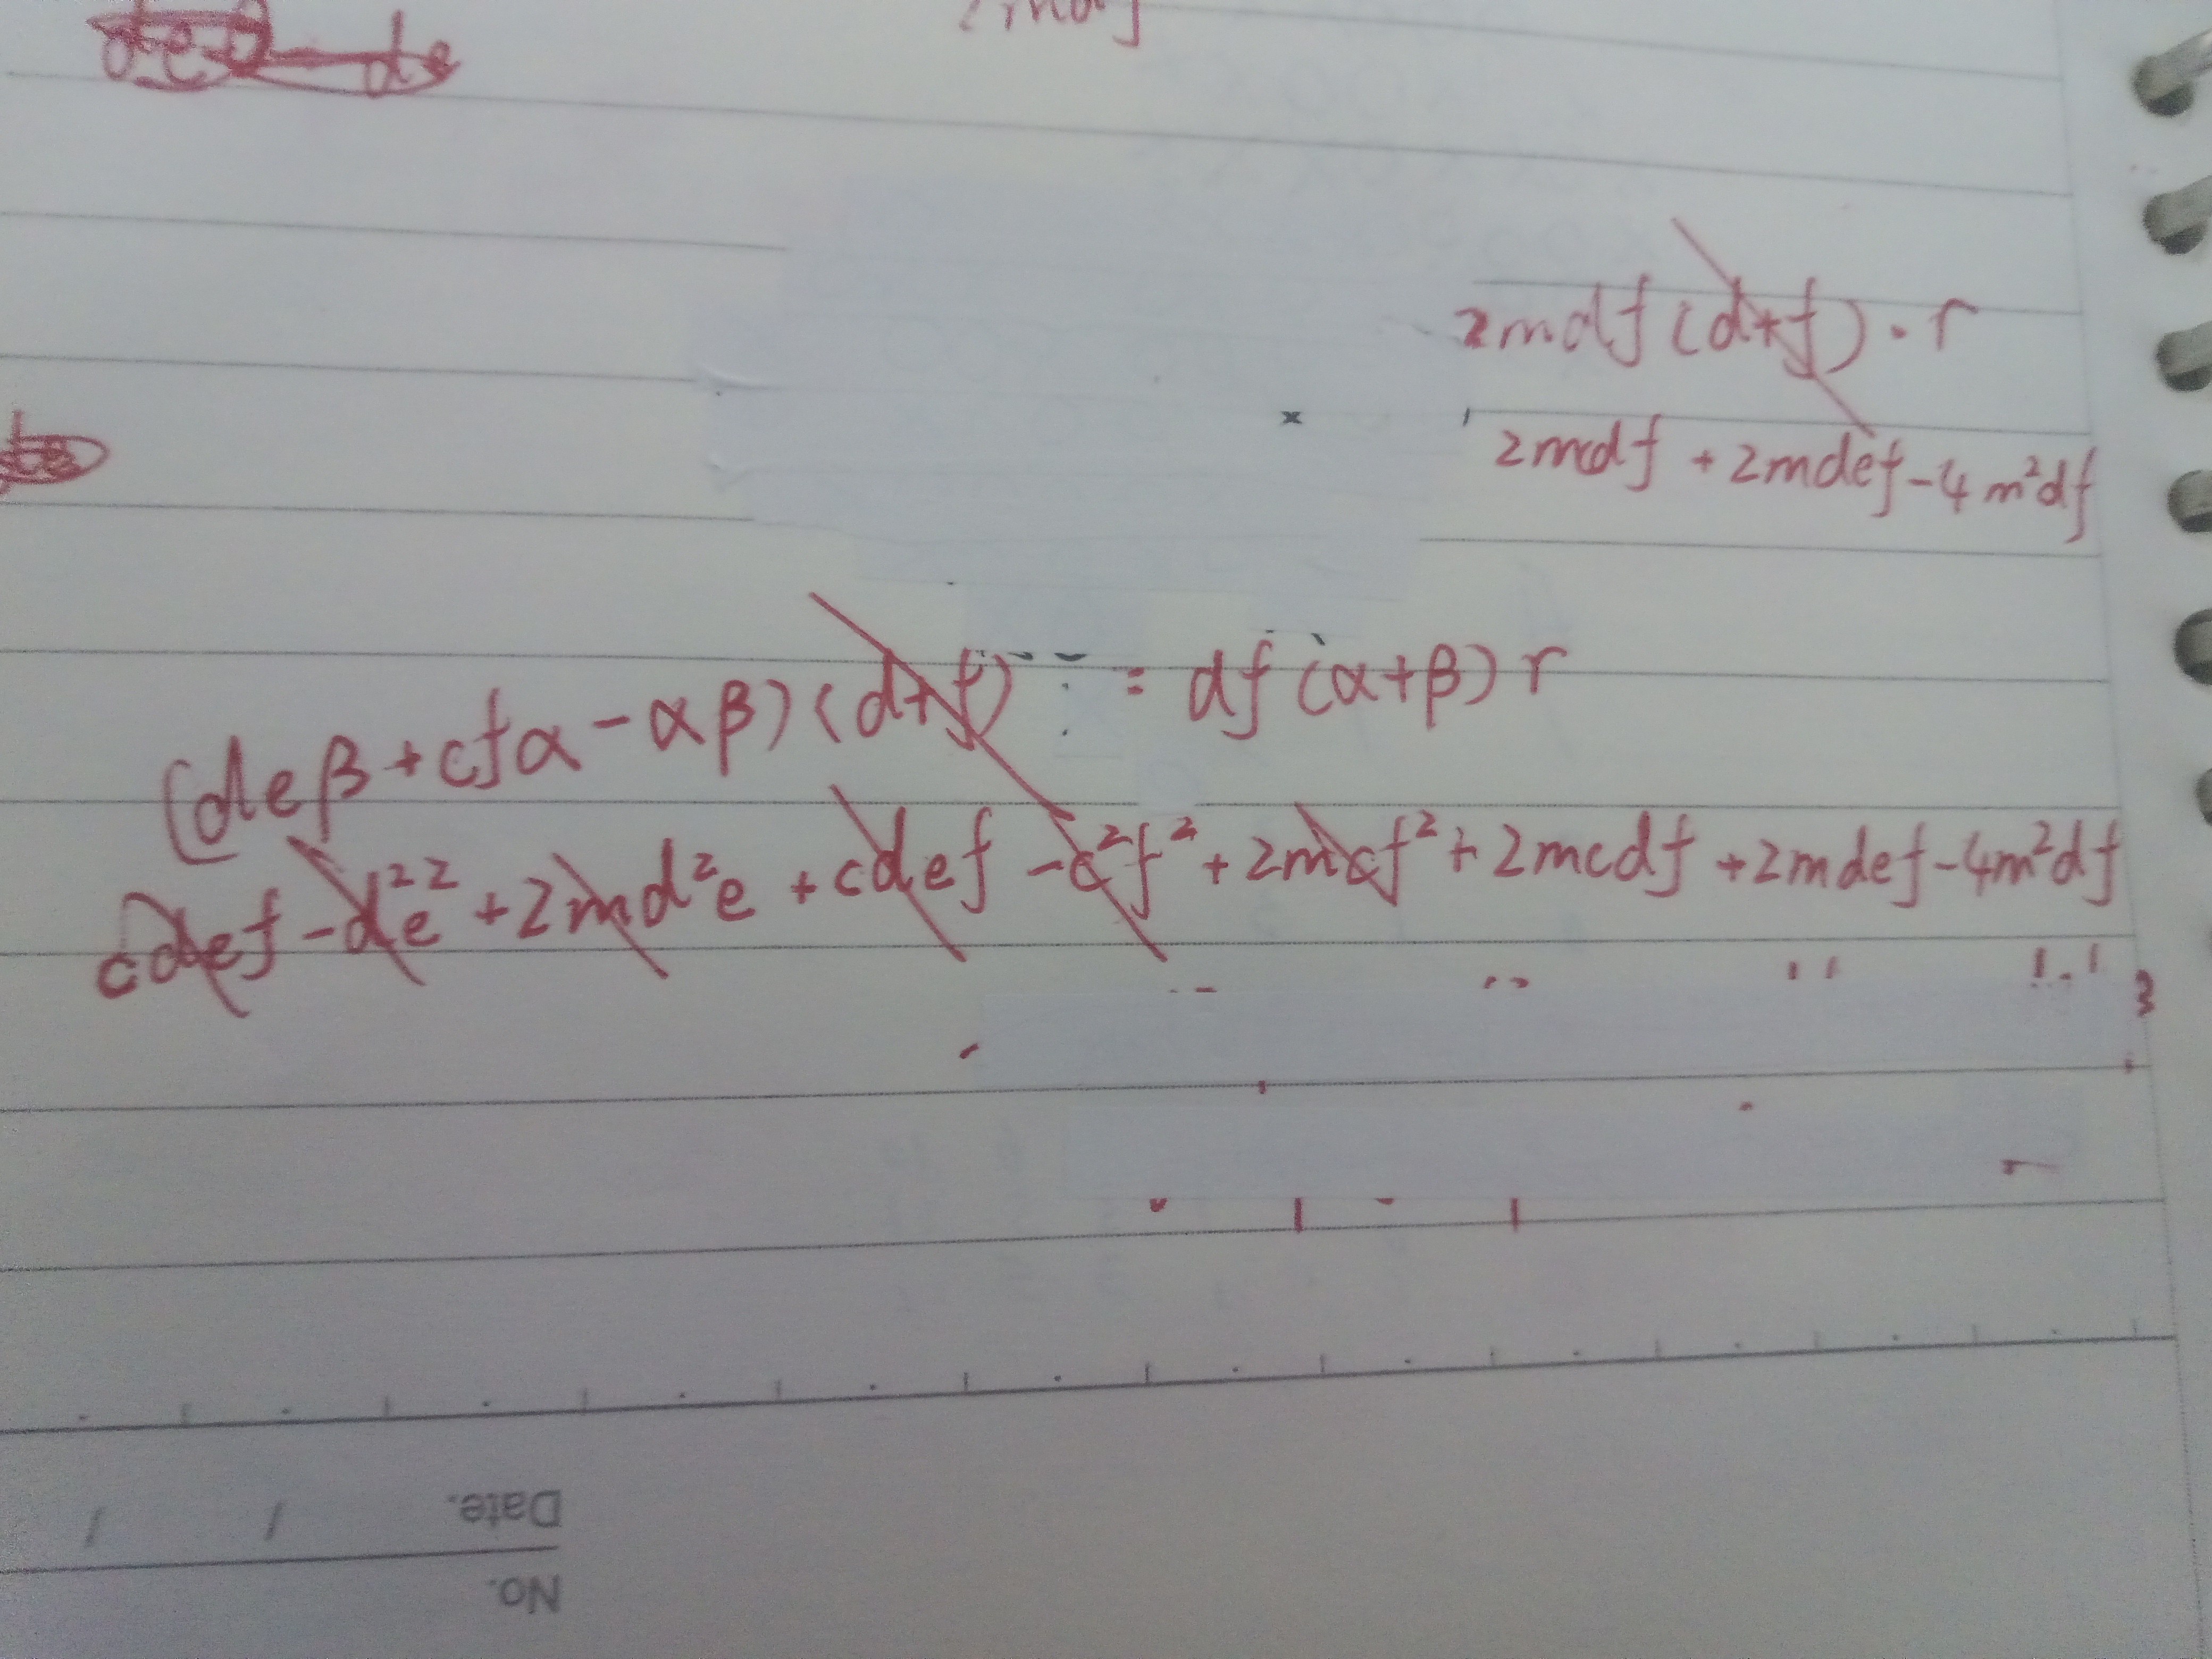 de
2mdf(d+f)·r
2mcdf + 2mdef - 4m²df
(deβ + cfα - αβ)(d+f) = df(α+β)r
cdef - d²e² + 2md²e + cdef - c²f² + 2mcf² + 2mcdf + 2mdef - 4m²df
Date.
No.